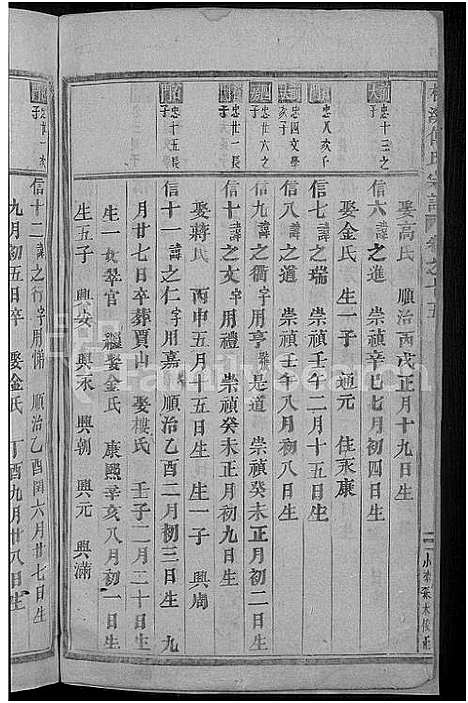 忠十三之子
忠八亥子
忠四文學子
忠廿六之子
忠廿一長子
忠十五長子
信六諱之進 崇禎辛巳七月初四日生
娶高氏 順治丙戌正月十九日生
信七諱之瑞 崇禎壬午二月十五日生
娶金氏 生一子 通元 住永康
信八諱之道 崇禎壬午八月初八日生
信九諱之衢字用亨號是道 崇禎癸未正月初二日生
信十諱之文字用禮 崇禎癸未正月初九日生
娶蔣氏 丙申五月十五日生 生一子 興周
信十一諱之仁字用嘉 順治乙酉二月初三日生 九
月廿七日卒葬賈山 娶樓氏 壬子二月二十日生
生一女翠官 繼娶金氏 康熙辛亥八月初一日生
生五子 興安 興永 興朝 興元 興滿
信十二諱之行字用悌 順治乙酉閏六月廿七日生
九月初五日卒 娶金氏 丁酉九月廿八日生